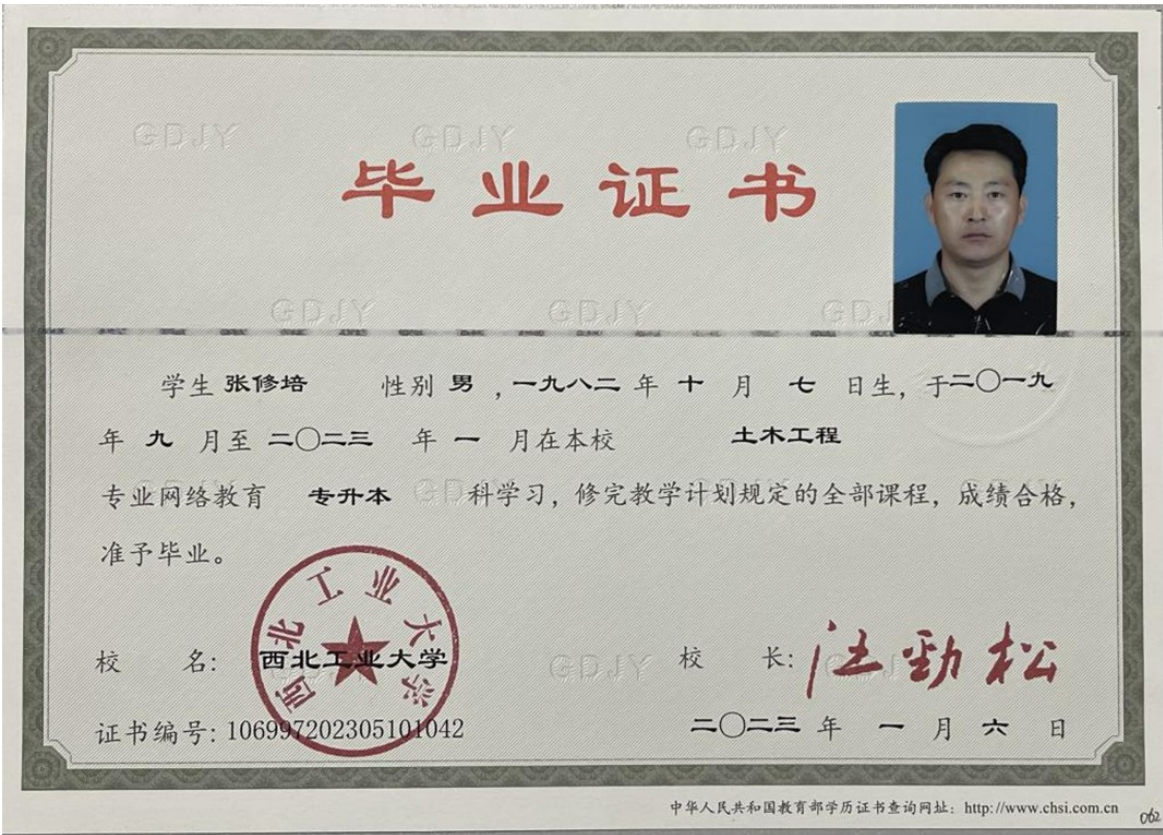 GDJY GDJY GDJY
毕业证书
GDJY GDJY GDJY
学生 张修培 性别 男 ，一九八二 年 十 月 七 日生，于二〇一九
年 九 月至 二〇二三 年 一 月在本校 土木工程
专业网络教育 专升本 科学习，修完教学计划规定的全部课程，成绩合格，
GDJY GDJY GDJY
准予毕业。
西北工业大学
校 名: 西北工业大学 校 长: 汪劲松
GDJY
证书编号: 106997202305101042 二〇二三 年 一 月 六 日
中华人民共和国教育部学历证书查询网址: http://www.chsi.com.cn
062